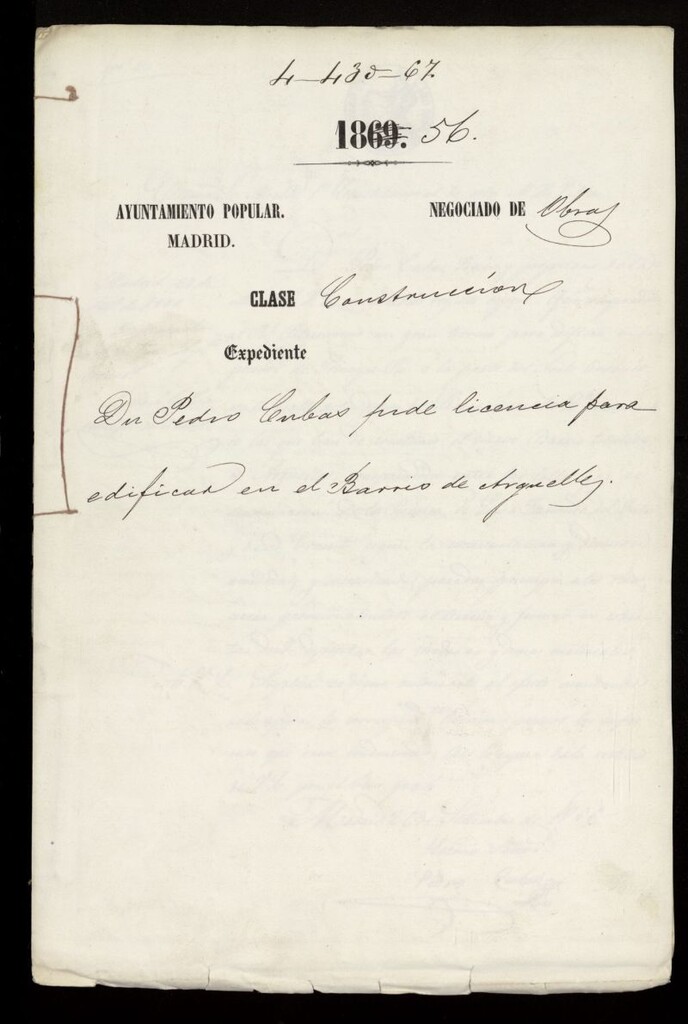 4-430-67.
1869. 56.
AYUNTAMIENTO POPULAR. NEGOCIADO DE Obras
MADRID.
CLASE Construccion
Expediente
Dn Pedro Cubas pide licencia para
edificar en el Barrio de Arguelles.